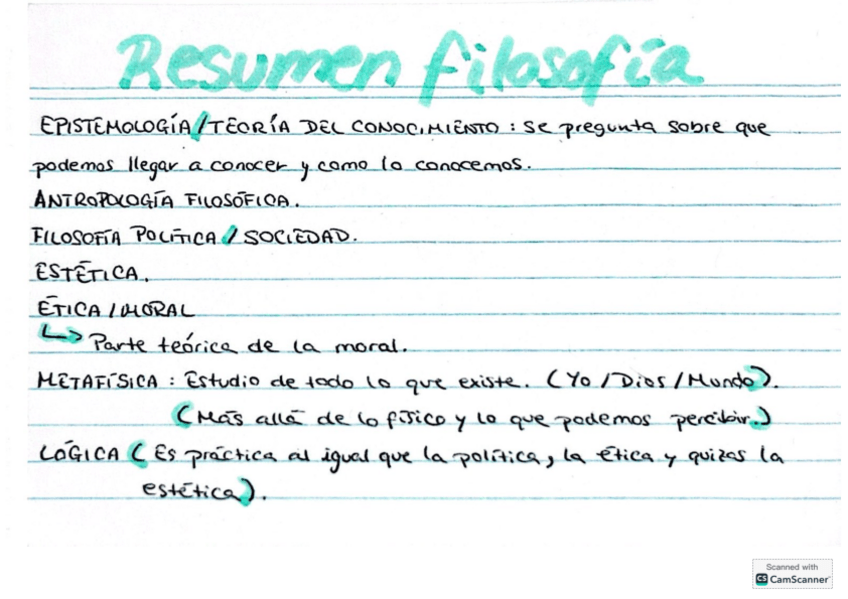 Resumen filosofía
EPISTEMOLOGÍA/TEORÍA DEL CONOCIMIENTO: Se pregunta sobre que
podemos llegar a conocer y como lo conocemos.
ANTROPOLOGÍA FILOSÓFICA.
FILOSOFÍA POLÍTICA / SOCIEDAD.
ESTÉTICA.
ÉTICA / MORAL
↳ Parte teórica de la moral.
METAFÍSICA: Estudio de todo lo que existe. (Yo/Dios/Mundo).
(Más allá de lo físico y lo que podemos percibir.)
LÓGICA (Es práctica al igual que la política, la ética y quizas la
estética).
Scanned with
CS CamScanner